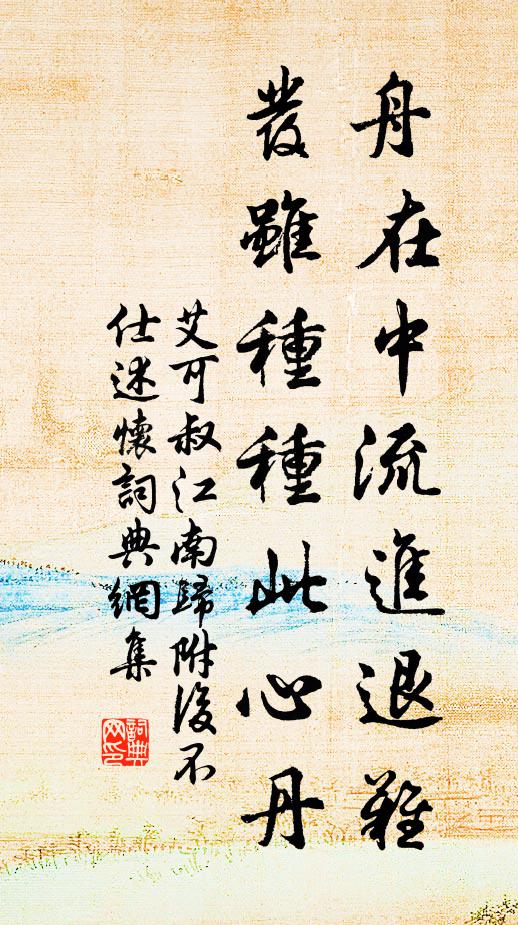 舟在中流進退難
發雖種種此心丹
艾可叔江南歸附後不
仕述懷詞典網集
詞典
网印